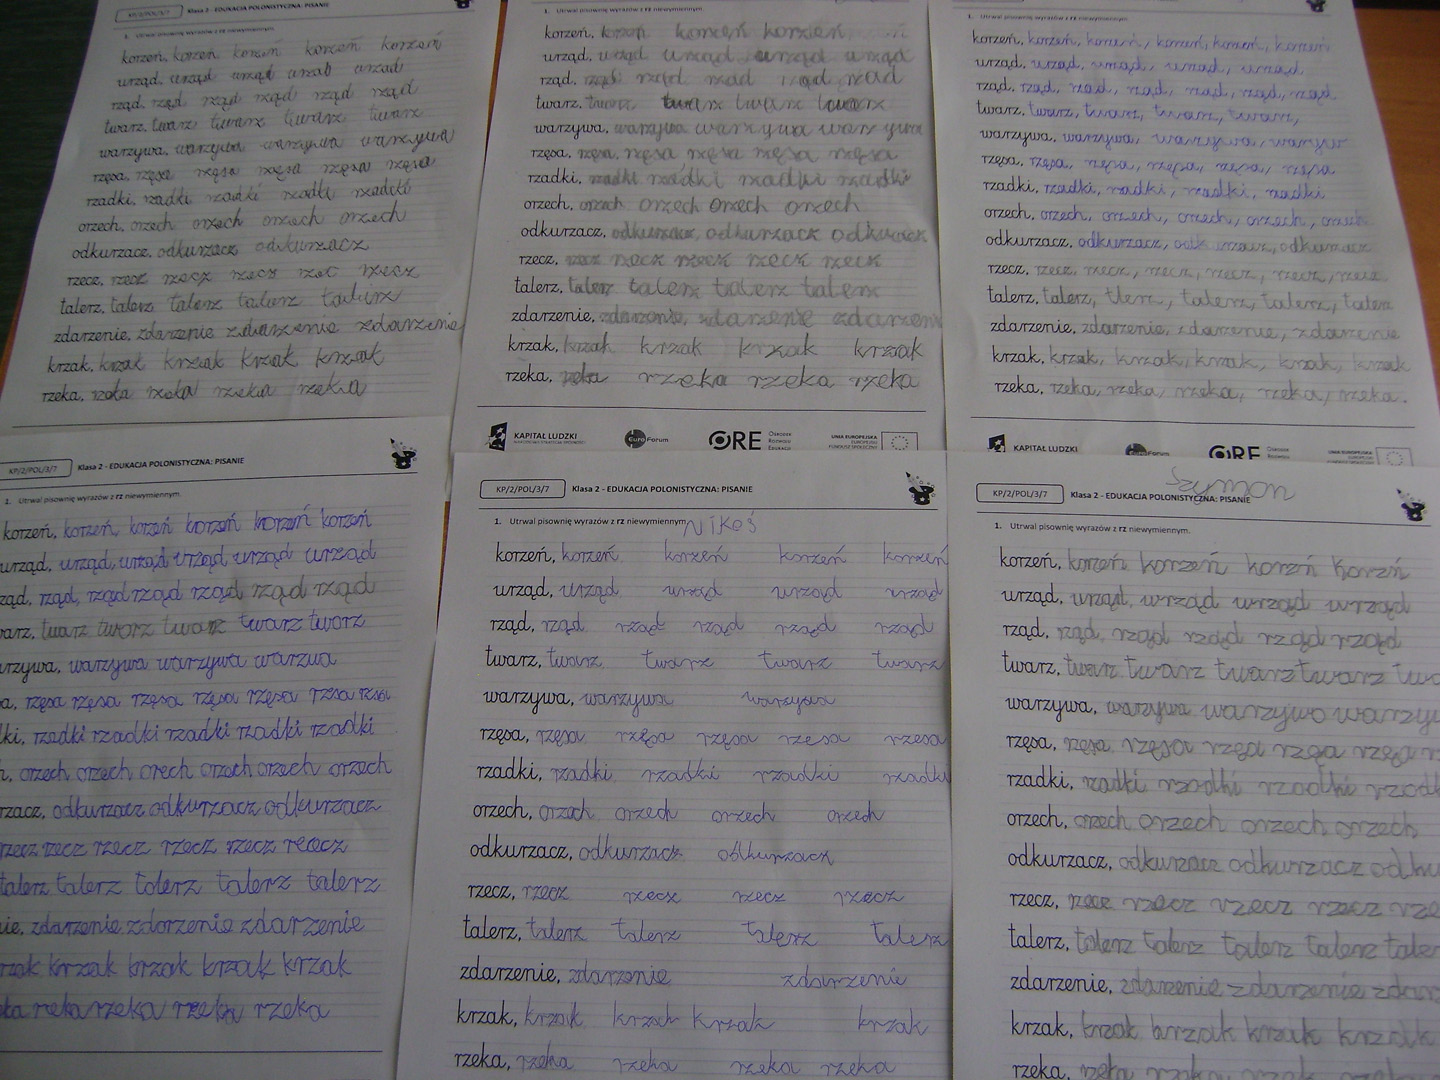 KP/2/POL/3/7 Klasa 2 - EDUKACJA POLONISTYCZNA: PISANIE
1. Utrwal pisownię wyrazów z rz niewymiennym.
korzeń, korzeń korzeń korzeń korzeń
urząd, urząd urząd urząd urząd
rząd, rząd rząd rząd rząd rząd
twarz, twarz twarz twarz twarz
warzywa, warzywa warzywa warzywa
rzęsa, rzęsa rzęsa rzęsa rzęsa rzęsa
rzadki, rzadki rzadki rzadki rzadki
orzech, orzech orzech orzech orzech
odkurzacz, odkurzacz odkurzacz
rzecz, rzecz rzecz rzecz rzecz
talerz, talerz talerz talerz talerz
zdarzenie, zdarzenie zdarzenie zdarzenie
krzak, krzak krzak krzak krzak
rzeka, rzeka rzeka rzeka rzeka
1. Utrwal pisownię wyrazów z rz niewymiennym.
korzeń, korzeń korzeń korzień
urząd, urząd urząd urząd urząd
rząd, rząd rząd rząd rząd rząd
twarz, twarz twarz twarz twarz
warzywa, warzywa warzywa warzywa
rzęsa, rzęsa rzęsa rzęsa rzęsa rzęsa
rzadki, rzadki rzadki rzadki rzadki
orzech, orzech orzech orzech orzech
odkurzacz, odkurzacz, odkurzacz odkurzacz
rzecz, rzecz rzecz rzecz rzecz rzecz
talerz, talerz talerz talerz talerz
zdarzenie, zdarzenie, zdarzenie zdarzeni
krzak, krzak krzak krzak krzak
rzeka, rzeka rzeka rzeka rzeka
KAPITAŁ LUDZKI EuroForum ORE Ośrodek Rozwoju Edukacji UNIA EUROPEJSKA EUROPEJSKI FUNDUSZ SPOŁECZNY
1. Utrwal pisownię wyrazów z rz niewymiennym.
korzeń, korzeń, korzeń, korzeń, korzeń, korzeń
urząd, urząd, urząd, urząd, urząd
rząd, rząd, rząd, rząd, rząd, rząd, rząd
twarz, twarz, twarz, twarz, twarz,
warzywa, warzywa, warzywa, warzyw
rzęsa, rzęsa, rzęsa, rzęsa, rzęsa, rzęsa
rzadki, rzadki, rzadki, rzadki, rzadki
orzech, orzech, orzech, orzech, orzech,
odkurzacz, odkurzacz, odkurzacz
rzecz, rzecz, rzecz, rzecz, rzecz, rzecz,
talerz, talerz, tlerz, talerz, talerz, talerz
zdarzenie, zdarzenie, zdarzenie, zdarzenie
krzak, krzak, krzak, krzak, krzak, krzak
rzeka, rzeka, rzeka, rzeka, rzeka, rzeka.
KAPITAŁ LUDZKI ORE Ośrodek Rozwoju UNIA EUROPEJSKA
KP/2/POL/3/7 Klasa 2 - EDUKACJA POLONISTYCZNA: PISANIE
1. Utrwal pisownię wyrazów z rz niewymiennym.
korzeń, korzeń korzeń korzeń korzeń korzeń
urząd, urząd, urząd urząd urząd urząd
ząd, rząd, rząd rząd rząd rząd rząd
warz, twarz tworz twarz twarz tworz
rzywa, warzywa warzywa warzwa
a, rzęsa rzęsa rzęsa rzęsa rzęsa rzęsa
ki, rzadki rzadki rzadki rzadki rzadki
h, orzech orzech orech orzech orzech orzech
rzacz, odkurzacz odkurzacz odkurzacz
rzecz rzecz rzecz rzecz rzecz
talerz talerz tolerz talerz talerz
ie, zdarzenie zdorzenie zdarzenie
rzak krzak krzak krzak krzak
ka reka rzeka rzeka rzeka
KP/2/POL/3/7 Klasa 2 - EDUKACJA POLONISTYCZNA: PISANIE
1. Utrwal pisownię wyrazów z rz niewymiennym Nikoś
korzeń, korzeń korzeń korzeń korzeń
urząd, urząd urząd urząd urząd
rząd, rząd rząd rząd rząd rząd
twarz, twarz twarz twarz twarz
warzywa, warzywa warzywa
rzęsa, rzęsa rzęsa rzęsa rzesa rzesa
rzadki, rzadki rzadki rzadki rzadki
orzech, orzech orzech orzech orzech
odkurzacz, odkurzacz odkurzacz
rzecz, rzecz rzecz rzecz rzecz
talerz, talerz talerz talerz talerz
zdarzenie, zdarzenie zdarzenie
krzak, krzak krzak krzak krzak
rzeka, rzeka rzeka rzeka rzeka
Szymon
KP/2/POL/3/7 Klasa 2 - EDUKACJA POLONISTYCZNA: PISANIE
1. Utrwal pisownię wyrazów z rz niewymiennym.
korzeń, korzeń korzeń korzń korzń
urząd, urząd, urząd urząd urząd
rząd, rząd, rząd rząd rząd rząd
twarz, twarz twarz twarz twarz twa
warzywa, warzywa warzywo warzyw
rzęsa, rzęsa rzęsa rzęa rzęa rzęsa r
rzadki, rzadki rzadki rzadki rzadk
orzech, orzech orzech orzech orzech
odkurzacz, odkurzacz odkurzacz odku
rzecz, rzecz rzecz rzecz rzecz rze
talerz, talerz talerz talerz talerz taler
zdarzenie, zdarzenie zdarzenie zdarz
krzak, krzak krzak krzak krzak
rzeka, rzeka rzeka rzeka